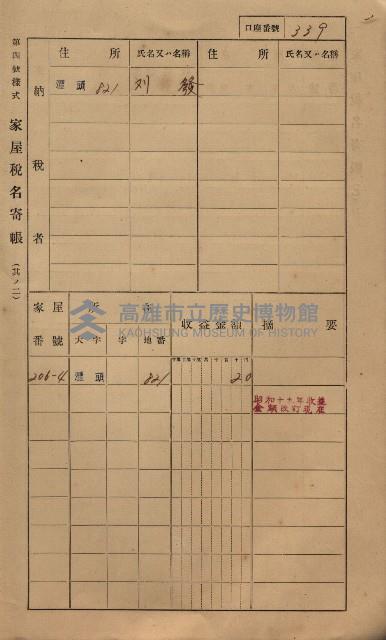 口座番號 339
第四號樣式
家屋稅名寄帳
(其ノ二)
納稅者
住所
氏名又ハ名稱
住所
氏名又ハ名稱
湮頭 821
刘發
家屋番號
所在
大字
字
地番
收益金額
摘要
206-4
湮頭
821
20
昭和十七年收益
金額改訂現在
高雄市立歷史博物館
KAOHSIUNG MUSEUM OF HISTORY